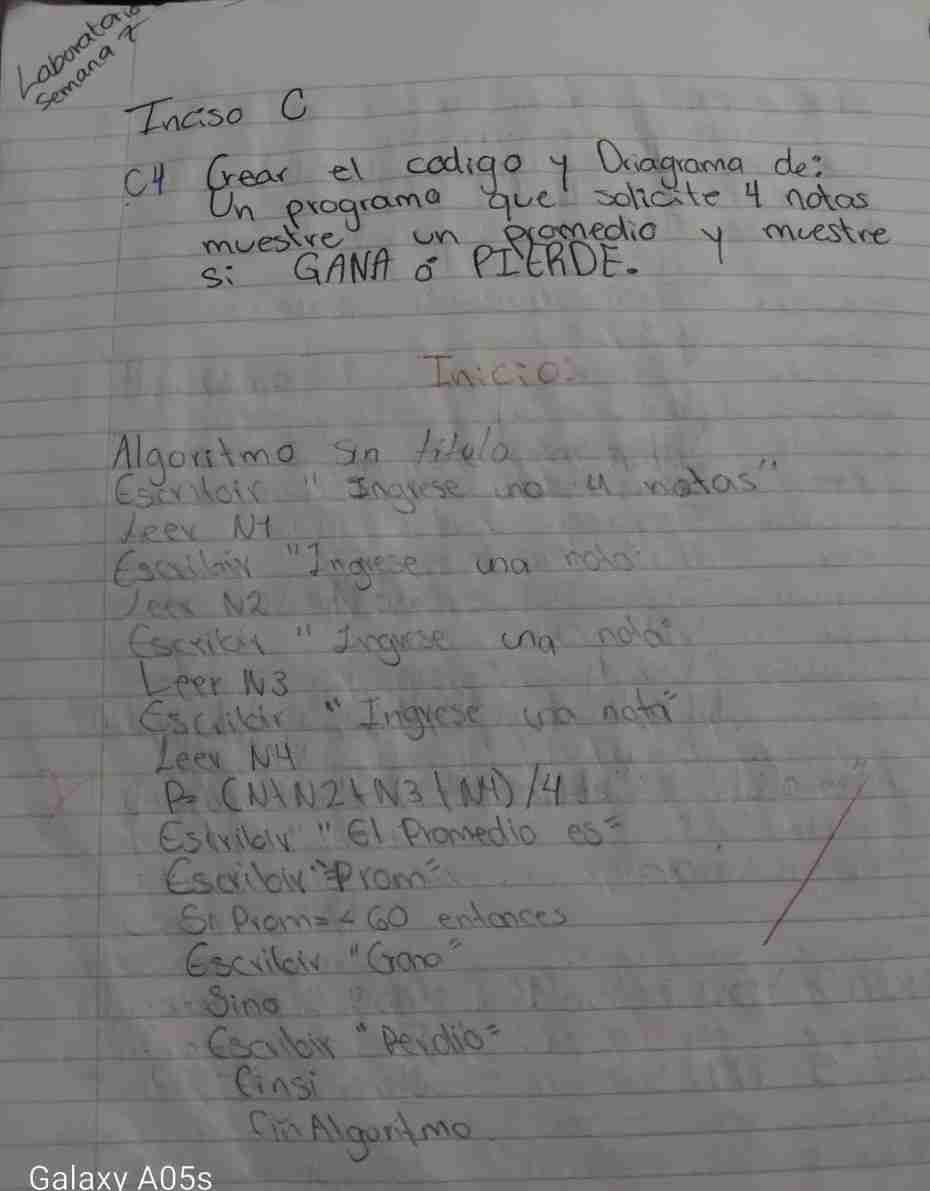 Laboratorio
Semana 7
Inciso C
C4 Crear el codigo y Diagrama de:
Un programa que solicite 4 notas
muestre un promedio y muestre
si GANA ó PIERDE.
Inicio:
Algoritmo Sin titulo
Escribir " Ingrese 4 notas"
Leer N1
Escribir "Ingrese una nota"
Leer N2
Escribir " Ingrese una nota"
Leer N3
Escribir " Ingrese una nota"
Leer N4
P= (N1+N2+N3+N4)/4
Escribir " El Promedio es"
Escribir Prom"
Si Prom=< 60 entonces
Escribir "Gano"
Sino
Escribir "Perdio"
Finsi
Fin Algoritmo
Galaxy A05s